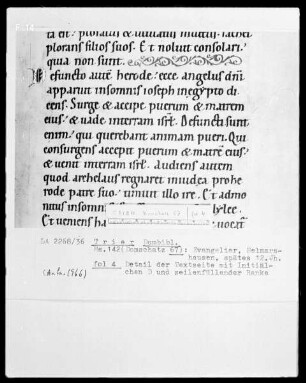 ta est. ploratus & ululatus multus. rachel
plorans filios suos. Et noluit consolari.
quia non sunt.
Defuncto aute herode: ecce angelus dni
apparuit insomnis ioseph inegypto di
cens. Surge & accipe puerum & matrem
eius. & uade interram isrl. Defuncti sunt
enim. qui querebant animam pueri. Qui
consurgens accepit puerum & matre eius.
& uenit interram isrl. Audiens autem
quod archelaus regnaret iniudea pro he
rode patre suo. timuit illo ire. Et admo
nitus insomnis
Et ueniens ha
uocari
DA 2268/36 Trier Dombibl.
Hs.142(Domschatz 67): Evangeliar, Helmars-
hausen, spätes 12.Jh.
fol 4 Detail der Textseite mit Initiäl-
chen D und zeilenfüllender Ranke